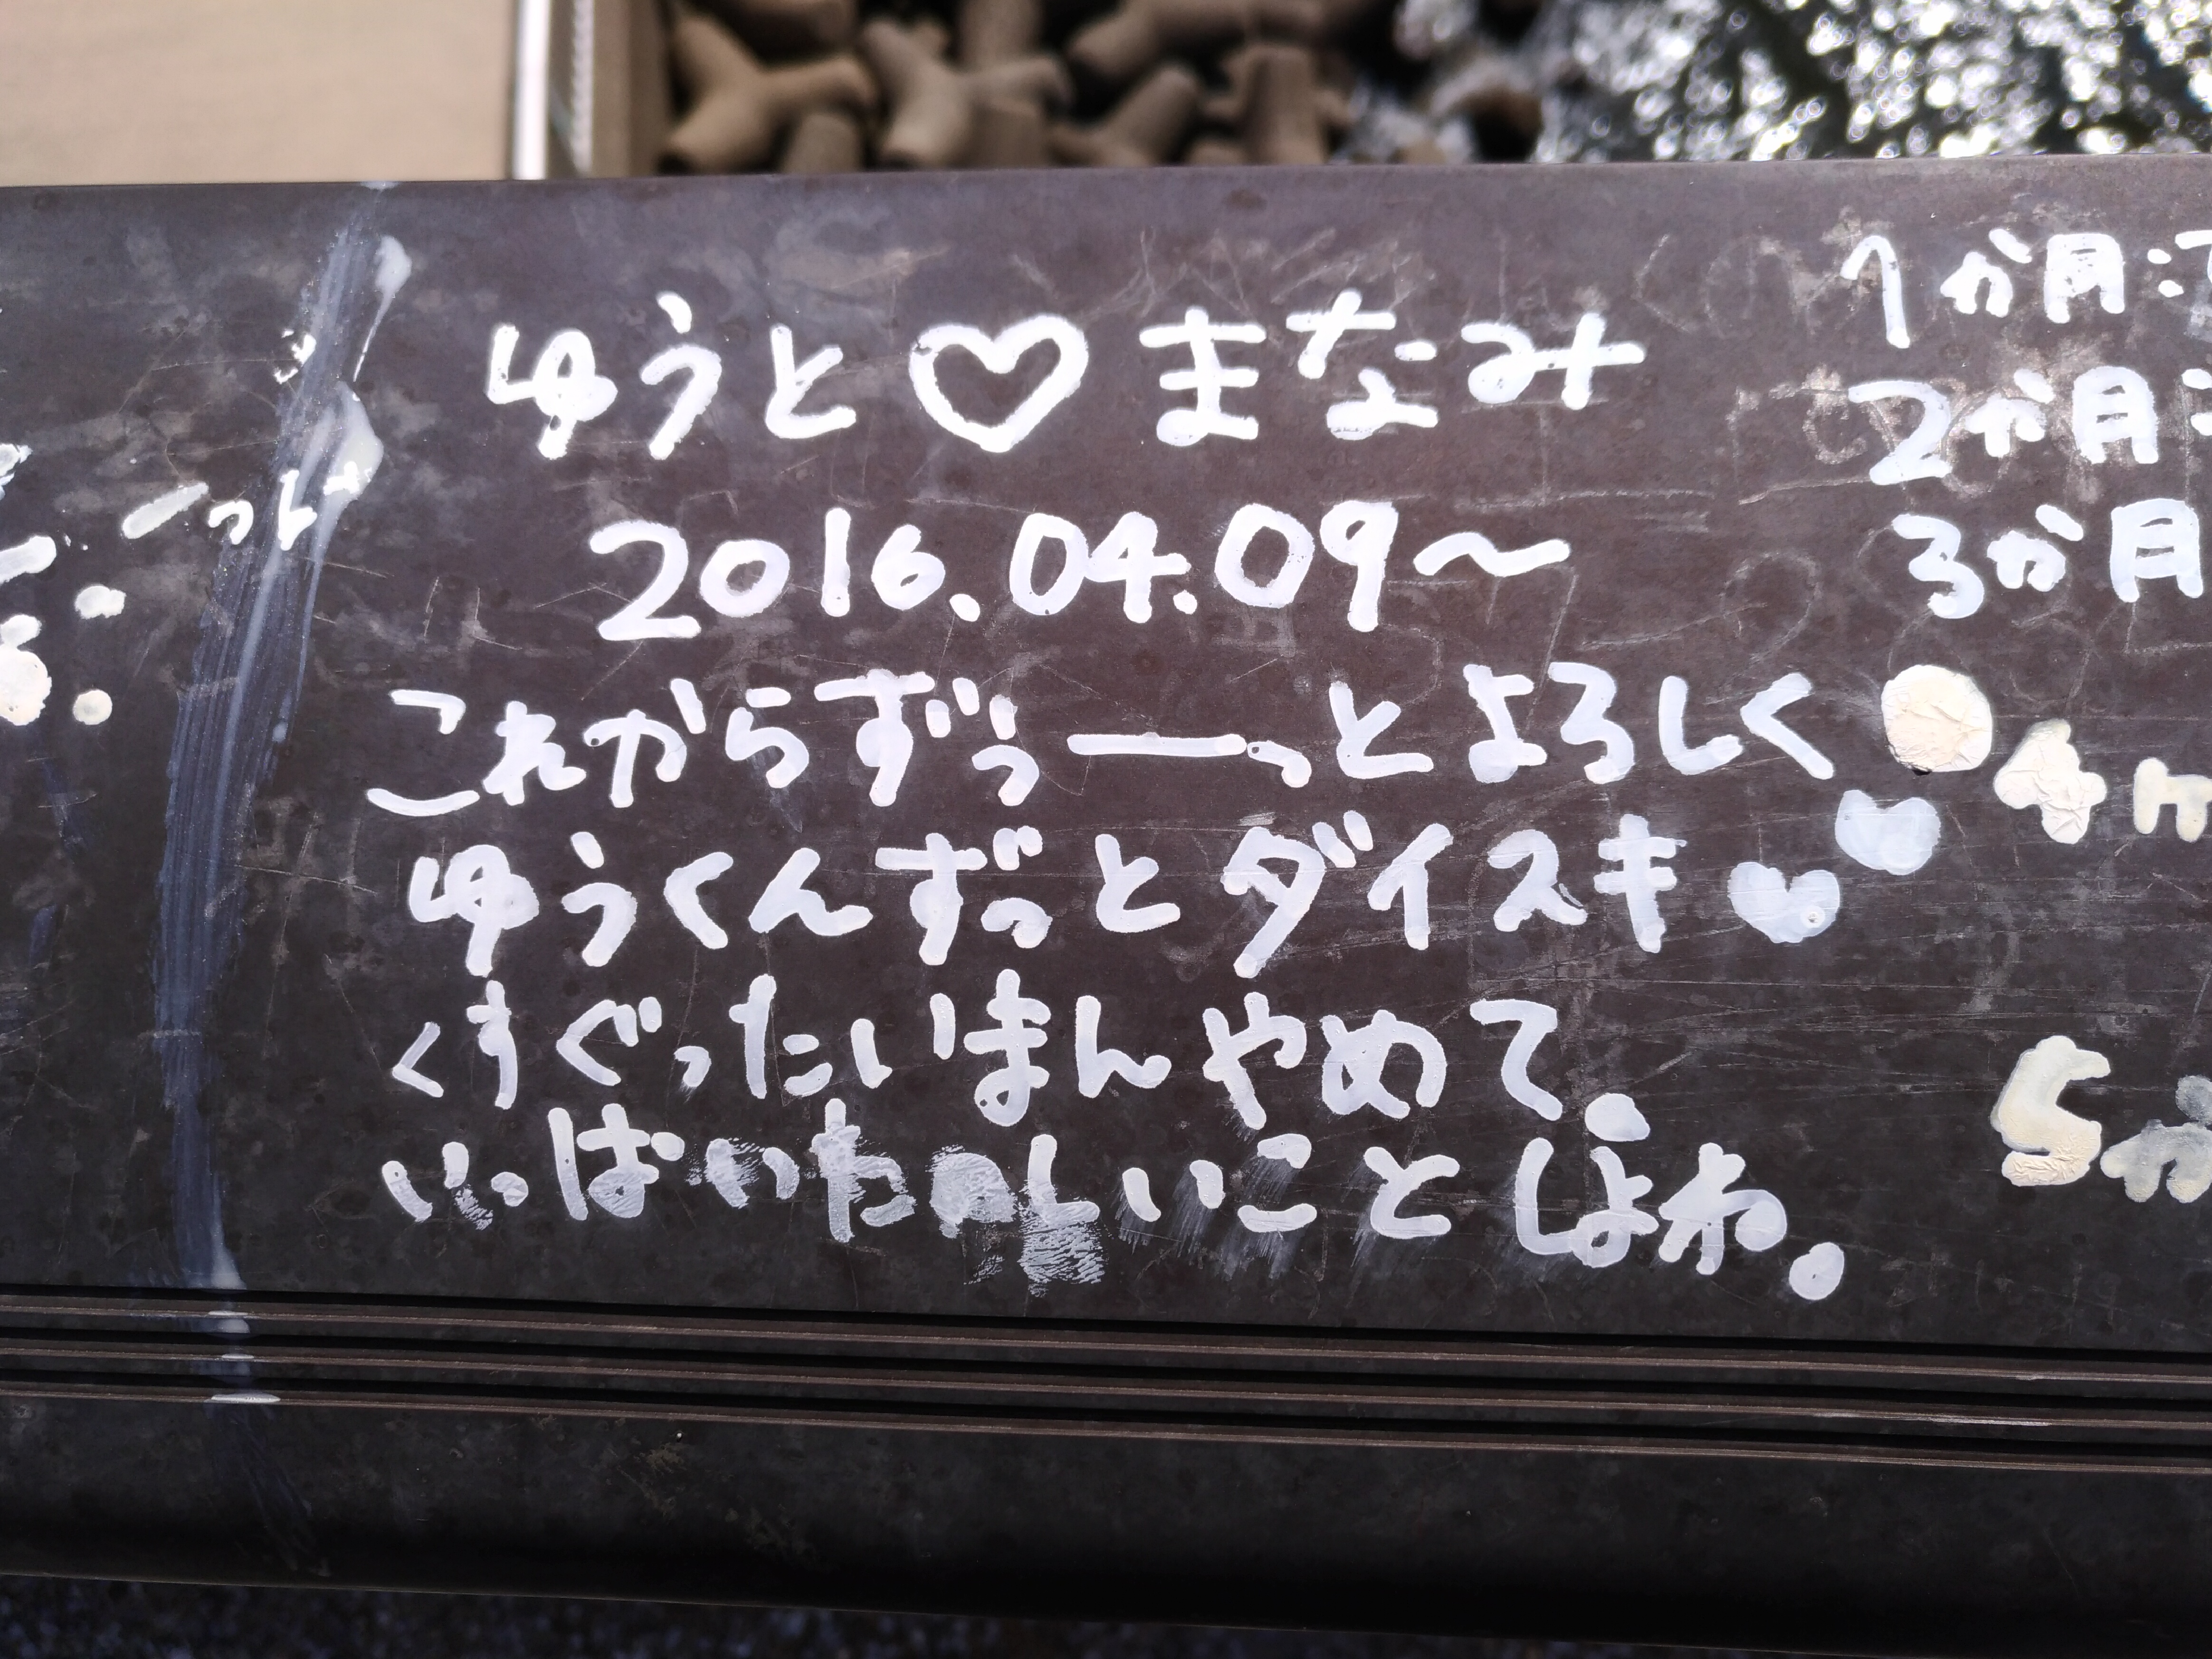 ゆうと♡まなみ
2016.04.09～
これからずぅーーっとよろしく
ゆうくんずっとダイスキ♥♥
くすぐったいまんやめて。
いっぱいたのしいことしよね。
1か月:
2か月:
3か月
4
5か